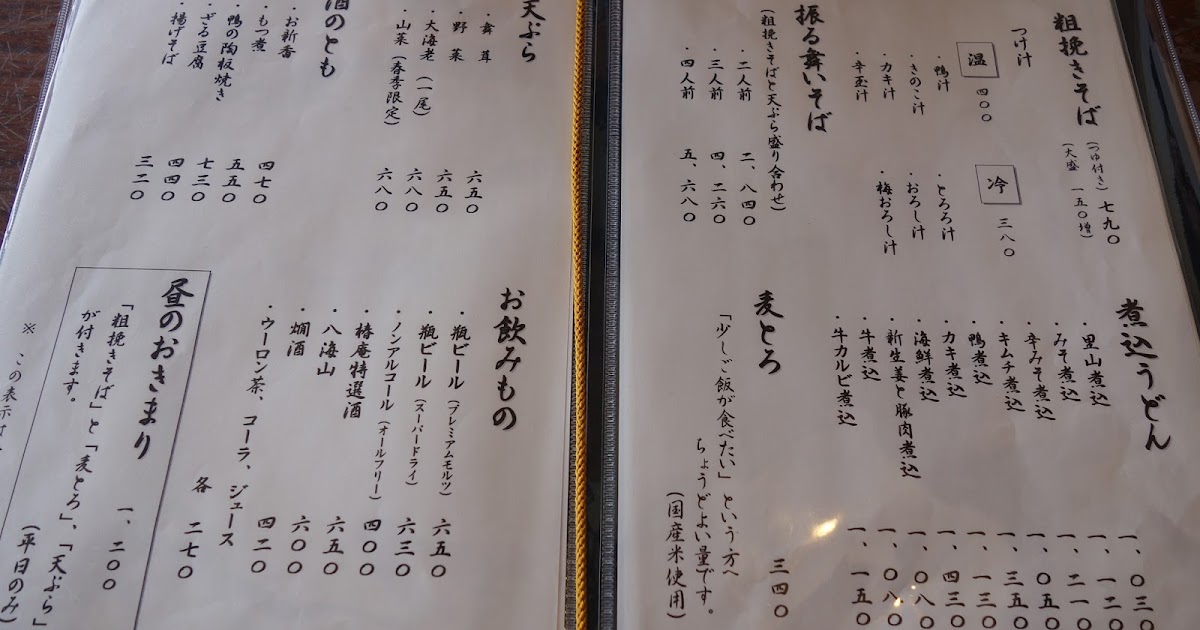 粗挽きそば (つゆ付き) 七九〇
(大盛 一五〇増)
つけ汁
温 四〇〇
・鴨汁
・きのこ汁
・カキ汁
・辛玉汁
冷 三八〇
・とろろ汁
・おろし汁
・梅おろし汁
振る舞いそば
(粗挽きそばと天ぷら盛り合わせ)
・二人前 二、八四〇
・三人前 四、二六〇
・四人前 五、六八〇
煮込うどん
・里山煮込 一、〇三〇
・みそ煮込 一、一二〇
・辛みそ煮込 一、二一〇
・キムチ煮込 一、〇五〇
・鴨煮込 一、三五〇
・カキ煮込 一、一三〇
・海鮮煮込 一、四三〇
・新生姜と豚肉煮込 一、〇八〇
・牛煮込 一、〇八〇
・牛カルビ煮込 一、一五〇
麦とろ 三四〇
「少しご飯が食べたい」という方へ
ちょうどよい量です。
(国産米使用)
天ぷら
・舞茸 六五〇
・野菜 六五〇
・大海老(一尾) 六八〇
・山菜(春季限定) 六八〇
酒のとも
・お新香
・もつ煮 四七〇
・鴨の陶板焼き 五五〇
・ざる豆腐 七三〇
・揚げそば 四四〇
三二〇
お飲みもの
・瓶ビール(プレミアムモルツ) 六五〇
・瓶ビール(スーパードライ) 六三〇
・ノンアルコール(オールフリー) 四〇〇
・椿庵特選酒 六五〇
・八海山 六〇〇
・燗酒 四二〇
・ウーロン茶、コーラ、ジュース
各 二七〇
昼のおきまり 一、二〇〇
「粗挽きそば」と「麦とろ」、「天ぷら」
が付きます。 (平日のみ)
※ この表示は